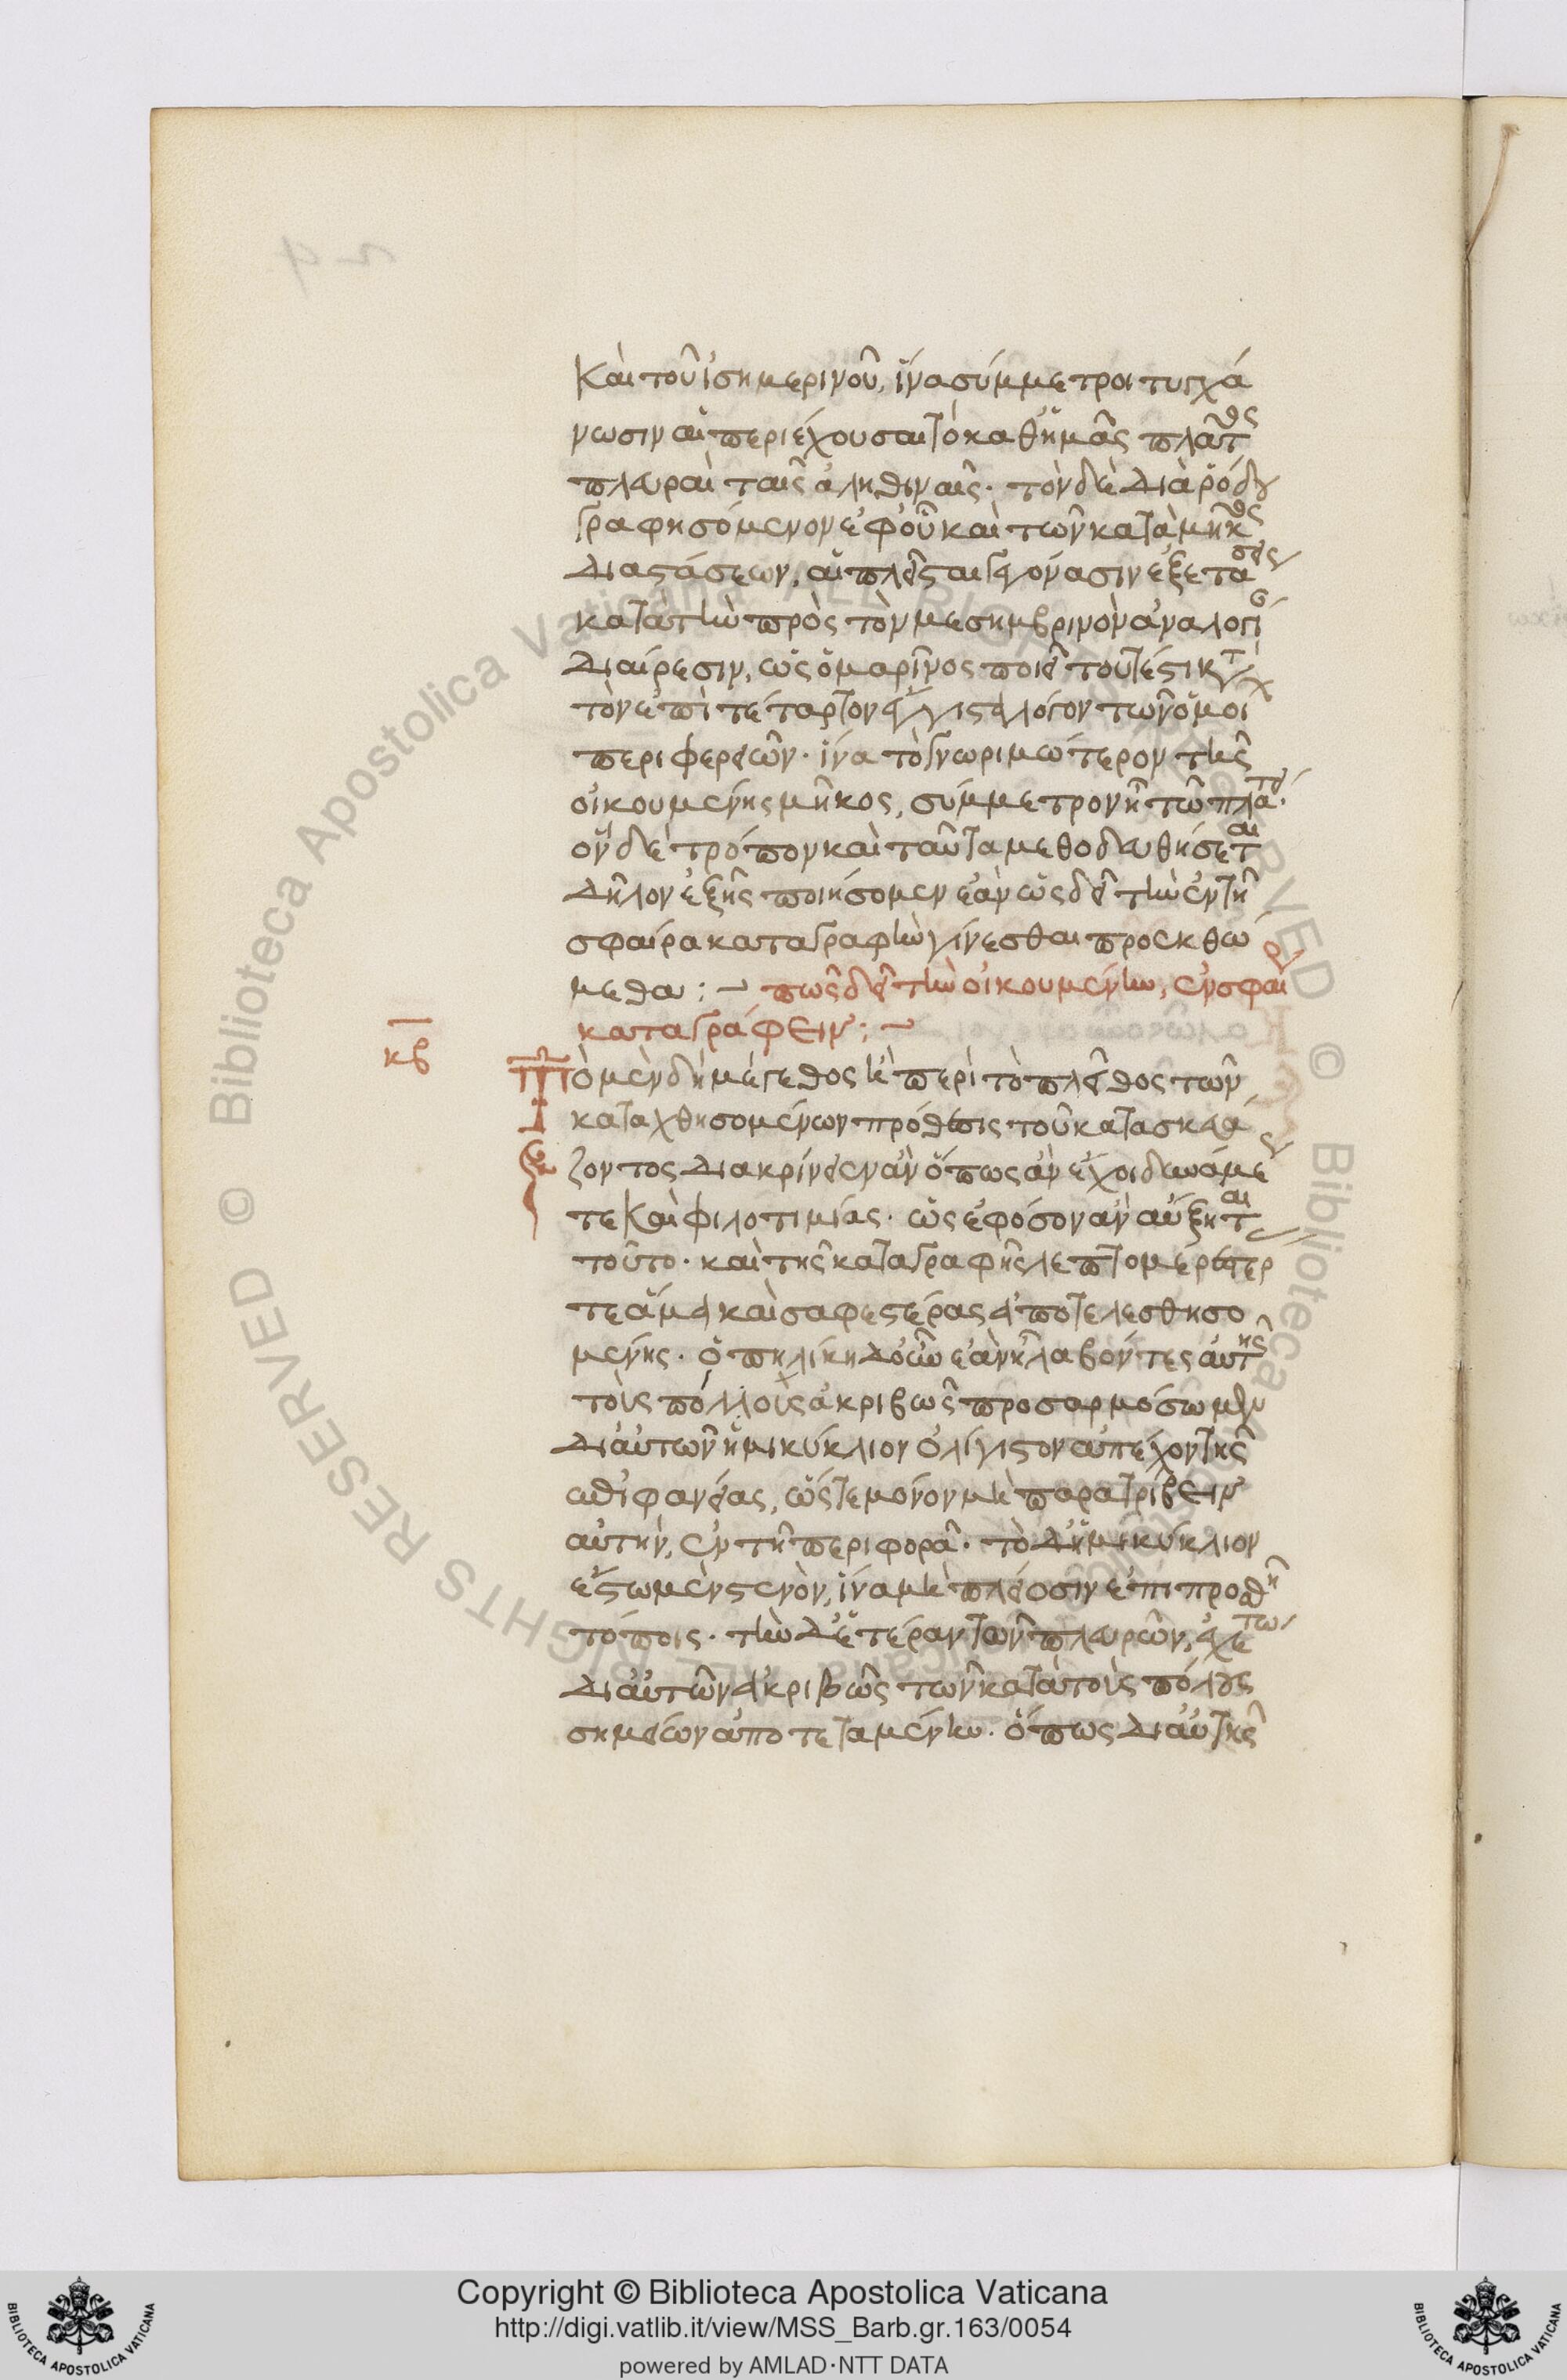 καὶ τοῦ ἰσημερινοῦ, ἵνα σύμμετροι τυγχά
νωσιν αἱ περιέχουσαι τὸ καθ' ἡμᾶς πλάτος
πλευραὶ ταῖς ἀληθιναῖς. τὸν δὲ διὰ ῥόδου
γραφησόμενον ἐφ' οὗ καὶ τῶν κατὰ μῆκος
διαστάσεων, αἱ πλεῖσται γεγόνασιν ἐξετάσεις
κατὰ τὴν πρὸς τὸν μεσημβρινὸν ἀναλογ
διαίρεσιν, ὡς ὁ μαρῖνος ποιεῖ τουτέστι κ τ
τὸν ἐπιτέταρτον ἔγγιστα λόγον τῶν ὁμοί
περιφερειῶν. ἵνα τὸ γνωριμώτερον τῆς
οἰκουμένης μῆκος, σύμμετρον ἦ τῶ πλάτει.
ὃν δὲ τρόπον καὶ ταῦτα μεθοδευθήσεται
δῆλον ἑξῆς ποιήσομεν ἐὰν ὡς δεῖ τὴν ἐν τῆ
σφαίρα καταγραφὴν γίνεσθαι προεκθώ
μεθα :~ πῶς δεῖ τὴν οἰκουμένην, ἐν σφαίρ
καταγράφειν :~
κβ
Τὸ μὲν δὴ μέγεθος ἡ περὶ τὸ πλῆθος τῶν
καταχθησομένων πρόθεσις τοῦ κατασκευά
ζοντος διακρίνειεν ἂν ὅπως ἂν ἔχοι δυνάμεως
τε καὶ φιλοτιμίας. ὡς ἐφόσον ἂν αὔξηται
τοῦτο. καὶ τῆς καταγραφῆς λεπτομερεστέρ
τε ἅμα καὶ σαφεστέρας ἀποτελεσθησο
μένης. ὁπηλίκη δ' οὖν ἐὰν ἦ λαβόντες αὐτῆς
τοὺς πόλους ἀκριβῶς προσαρμόσωμεν
δι αὐτῶν ἡμικύκλιον ὀλίγιστον ἀπέχον τῆς
ἐπιφανείας, ὥστε μόνον μὴ παρατρίβειν
αὐτὴν, ἐν τῆ περιφορᾶ. τὸ δ' ἡμικύκλιον
ἔστω μὲν στενὸν, ἵνα μὴ πλείοσιν ἐπιπροσθῆ
τόποις. τὴν δ' ἑτέραν τῶν πλευρῶν, ἐχέτω
δι αὐτῶν ἀκριβῶς τῶν κατὰ τοὺς πόλους
σημείων ἀποτεταμένην. ὅπως δι αὐτῆς
Copyright © Biblioteca Apostolica Vaticana
http://digi.vatlib.it/view/MSS_Barb.gr.163/0054
powered by AMLAD·NTT DATA